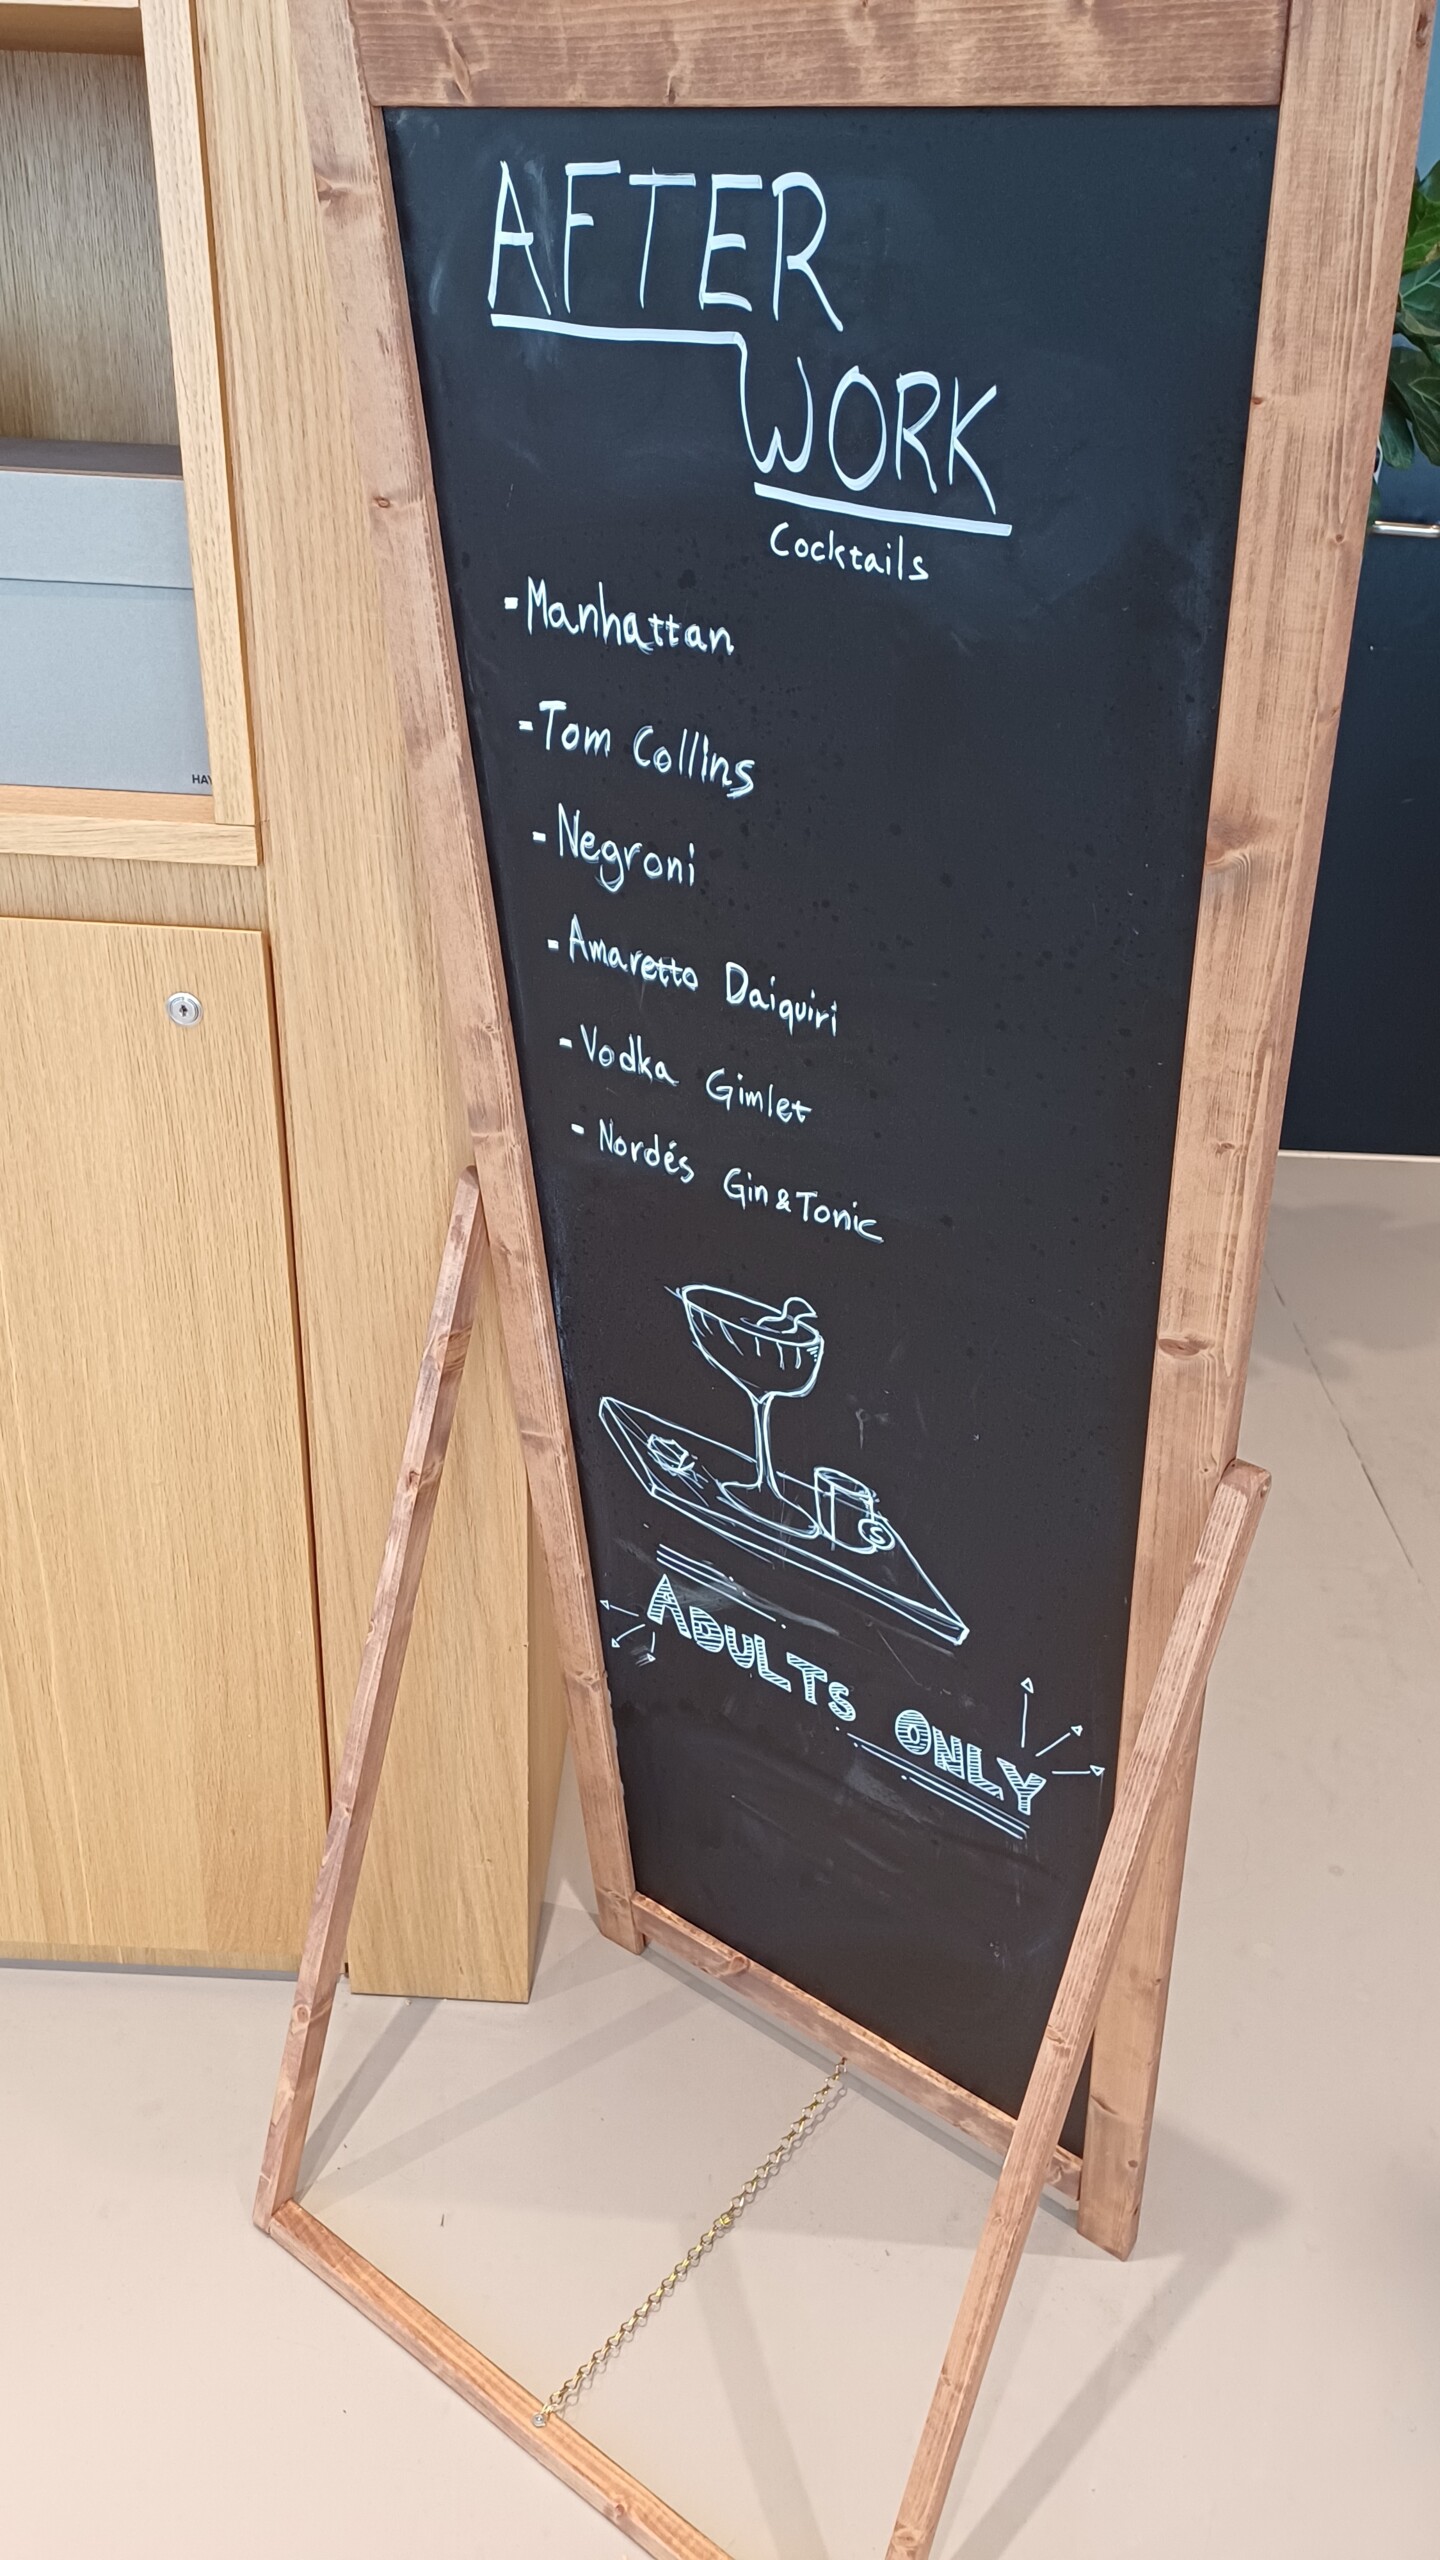 AFTER
WORK
Cocktails
- Manhattan
- Tom Collins
- Negroni
- Amaretto Daiquiri
- Vodka Gimlet
- Nordés Gin & Tonic
ADULTS ONLY
HAY